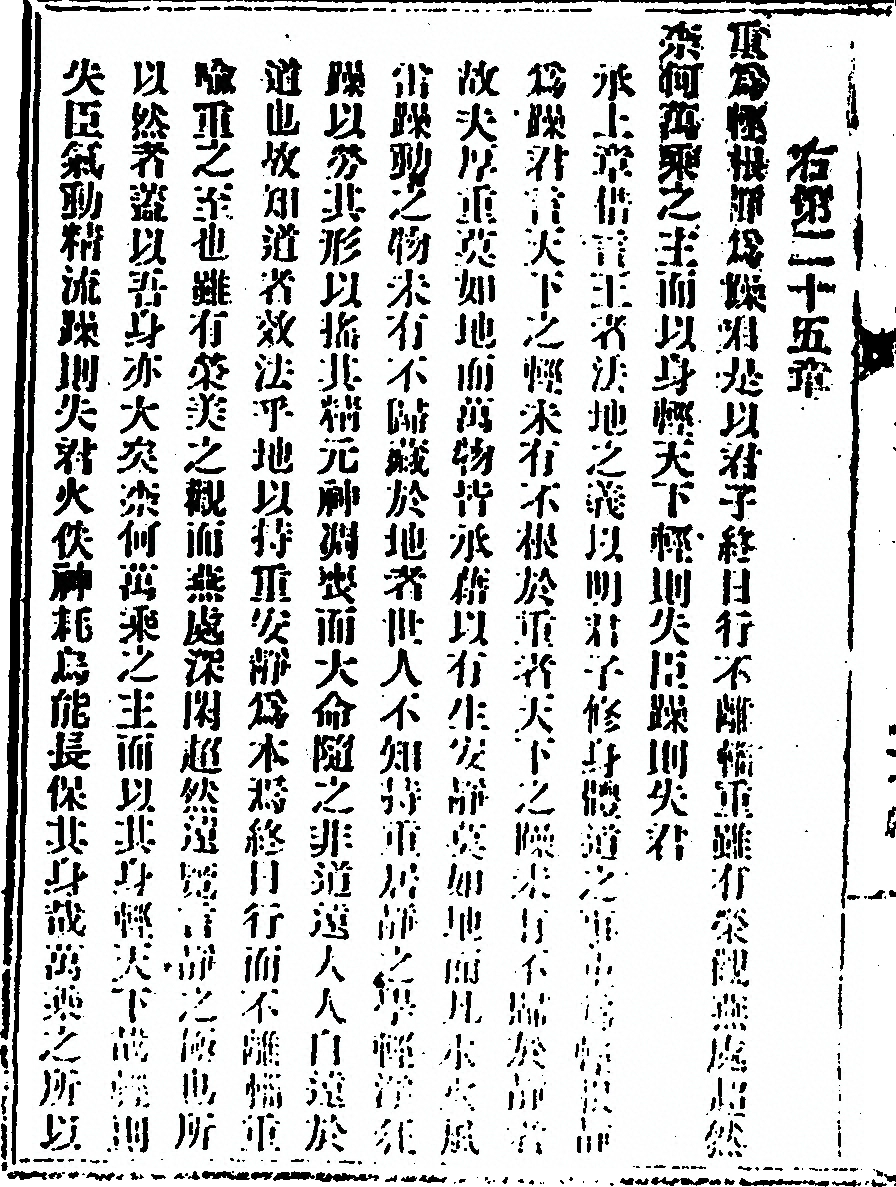 右第二十五章
重爲輕根靜爲躁君是以君子終日行不離輜重雖有榮觀燕處超然
柰何萬乘之主而以身輕天下輕則失臣躁則失君
承上章借言王者法地之義以明君子修身體道之事重爲輕根靜
爲躁君言天下之輕未有不根於重者天下之躁未有不歸於靜者
故夫厚重莫如地而萬物皆承藉以有生安靜莫如地而凡水火風
雷躁動之物未有不歸藏於地者世人不知持重居靜之學輕浮狂
躁以勞其形以搖其精元神凋喪而大命隨之非道遠人人自遠於
道也故知道者效法乎地以持重安靜爲本焉終日行而不離輜重
喻重之至也雖有榮美之觀而燕處深閑超然遠覽言靜之極也所
以然者蓋以吾身亦大矣柰何萬乘之主而以其身輕天下哉輕則
失臣氣動精流躁則失君火佚神耗烏能長保其身哉萬乘之所以